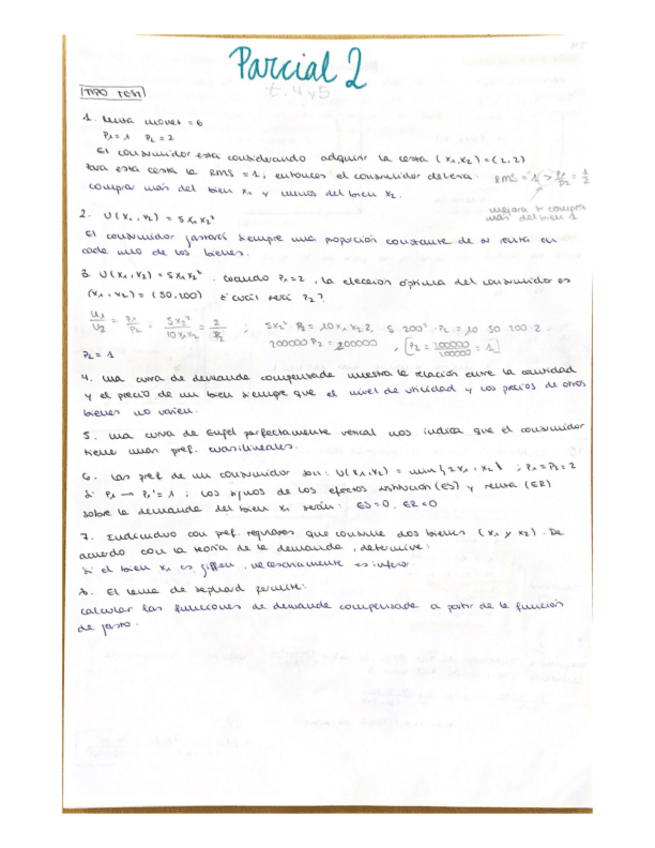 Parcial 2
t. 4 y 5
TIPO TEST
1. Renta monet = 6
P1 = 1 P2 = 2
El consumidor está considerando adquirir la cesta (x1, x2) = (2,2)
Para esta cesta la RMS = 1, entonces el consumidor debería: RMS = 1 > P1/P2 = 1/2
comprar más del bien x1 y menos del bien x2.
mejora + compra
más del bien 1
2. U(x1, x2) = 5x1x2²
El consumidor gastará siempre una proporción constante de su renta en
cada uno de los bienes.
3. U(x1, x2) = 5x1x2². Cuando P1 = 2, la elección óptima del consumidor es
(x1, x2) = (50,100) ¿cuál será P2?
U1/U2 = P1/P2 ; 5x2²/10x1x2 = 2/P2 ; 5x2² P2 = 10x1x2 2, 5 200² · P2 = 10 50 200 · 2
200000 P2 = 200000 , P2 = 200000/100000 = 1
P2 = 1
4. una curva de demanda compensada muestra la relación entre la cantidad
y el precio de un bien siempre que el nivel de utilidad y los precios de otros
bienes no varíen.
5. una curva de Engel perfectamente vertical nos indica que el consumidor
tiene unas pref. cuasilineales.
6. Las pref de un consumidor son: U(x1, x2) = min {2x1, x2} ; P1 = P2 = 2
Si P1 → P1' = 1 ; los signos de los efectos sustitución (ES) y renta (ER)
sobre la demanda del bien x1 serán: ES = 0, ER < 0
7. Individuo con pref. regulares que consume dos bienes (x1 y x2). De
acuerdo con la teoría de la demanda, determine:
Si el bien x1 es giffen, necesariamente es inferior.
8. El lema de Sephard permite:
calcular las funciones de demanda compensada a partir de la función
de gasto.